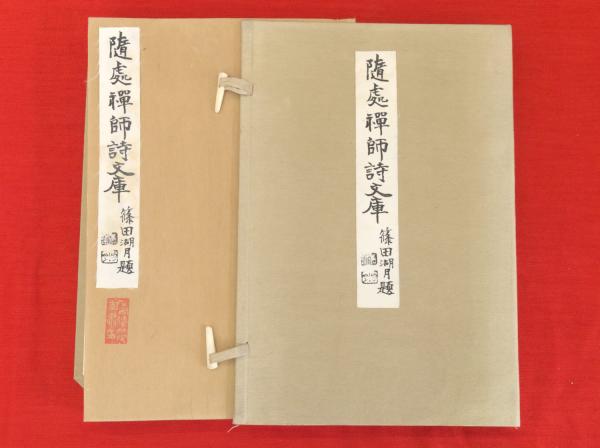 隨處禪師詩文庫
篠田湖月題
隨處禪師詩文庫
篠田湖月題